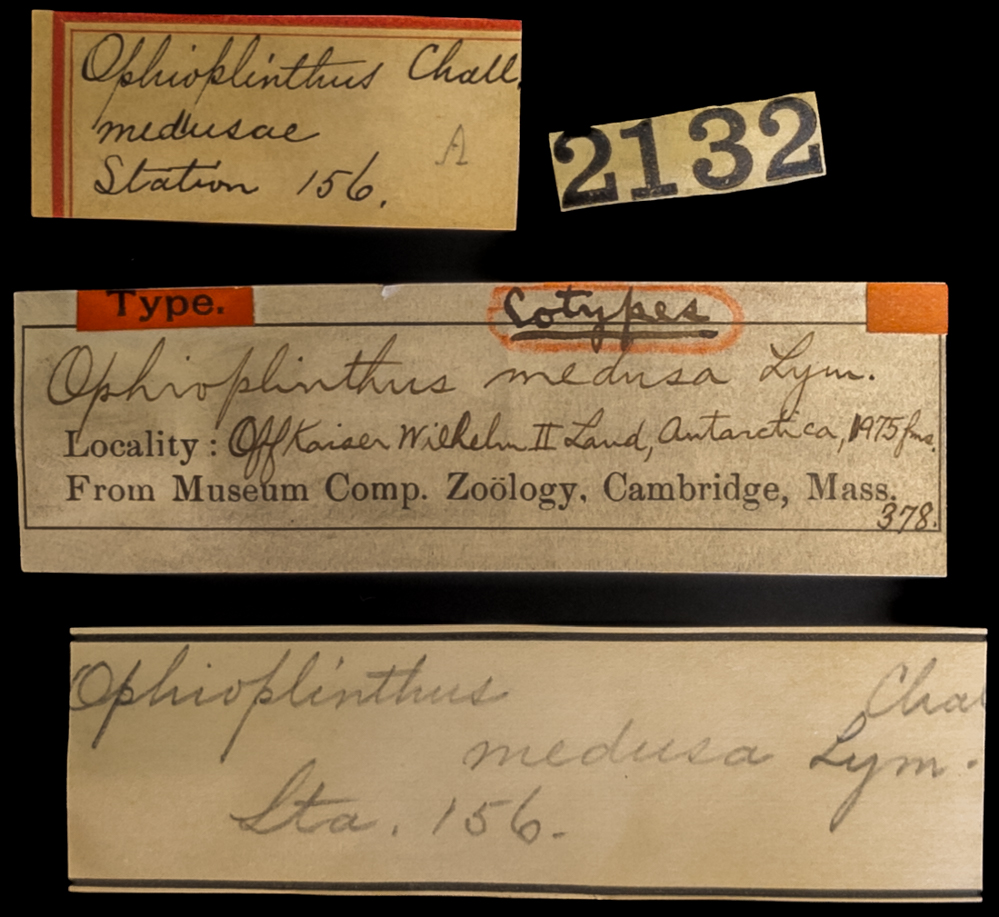 Ophioplinthus Chall.
medusae
A
Station 156.
2132
Type.
Cotypes
Ophioplinthus medusa Lym.
Locality: Off Kaiser Wilhelm II Land, Antarctica, 1975 fms.
From Museum Comp. Zoölogy, Cambridge, Mass.
378.
Ophioplinthus Chal
medusa Lym.
Sta. 156.